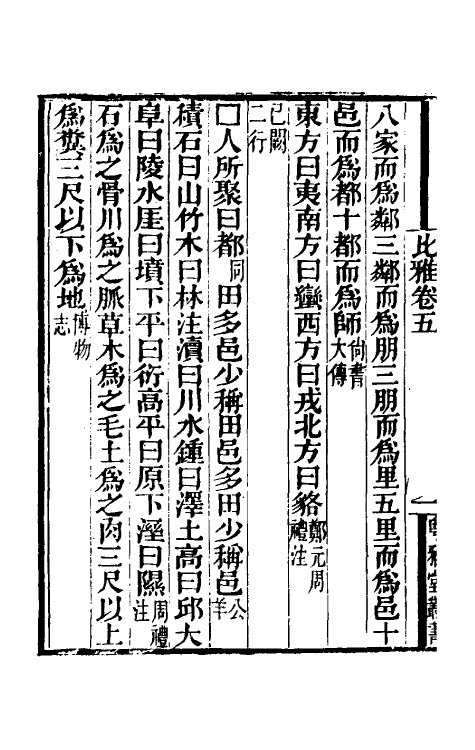 比雅卷五 一 粵雅堂叢書
八家而爲鄰三鄰而爲朋三朋而爲里五里而爲邑十
邑而爲都十都而爲師尚書大傳
東方曰夷南方曰蠻西方曰戎北方曰貉鄭元周禮注
已闕二行
□人所聚曰都同田多邑少稱田邑多田少稱邑公羊
積石曰山竹木曰林注瀆曰川水鍾曰澤土高曰邱大
阜曰陵水厓曰墳下平曰衍高平曰原下溼曰隰周禮注
石爲之骨川爲之脈草木爲之毛土爲之肉三尺以上
爲糞三尺以下爲地博物志